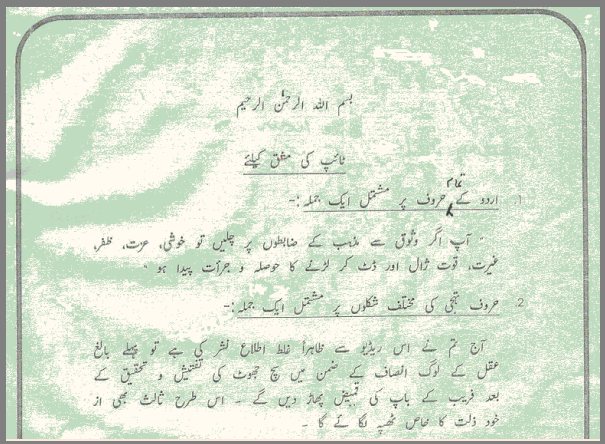 بسم اللہ الرحمٰن الرحیم
ٹائپ کی مشق کیلئے
1. اردو کے تمام حروف پر مشتمل ایک جملہ :-
" آپ اگر وثوق سے مذہب کے ضابطوں پر چلیں تو خوشی، عزت، ظفر،
غیرت، قوت ژال اور ڈٹ کر لڑنے کا حوصلہ و جرأت پیدا ہو "
2. حروف تہجی کی مختلف شکلوں پر مشتمل ایک جملہ :-
آج تم نے اس ریڈیو سے ظاہراً غلط اطلاع نشر کی ہے تو پہلے بالغ
عقل کے لوگ انصاف کے ضمن میں سچ جھوٹ کی تفتیش و تحقیق کے
بعد فریب کے باپ کی قمیض پھاڑ دیں گے ۔ اس طرح ثالث بھی از
خود ذلت کا خاص ٹھپہ لگا ئے گا ۔